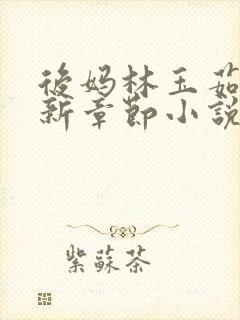 後媽林玉茹
新章節小說
紫蘇茶